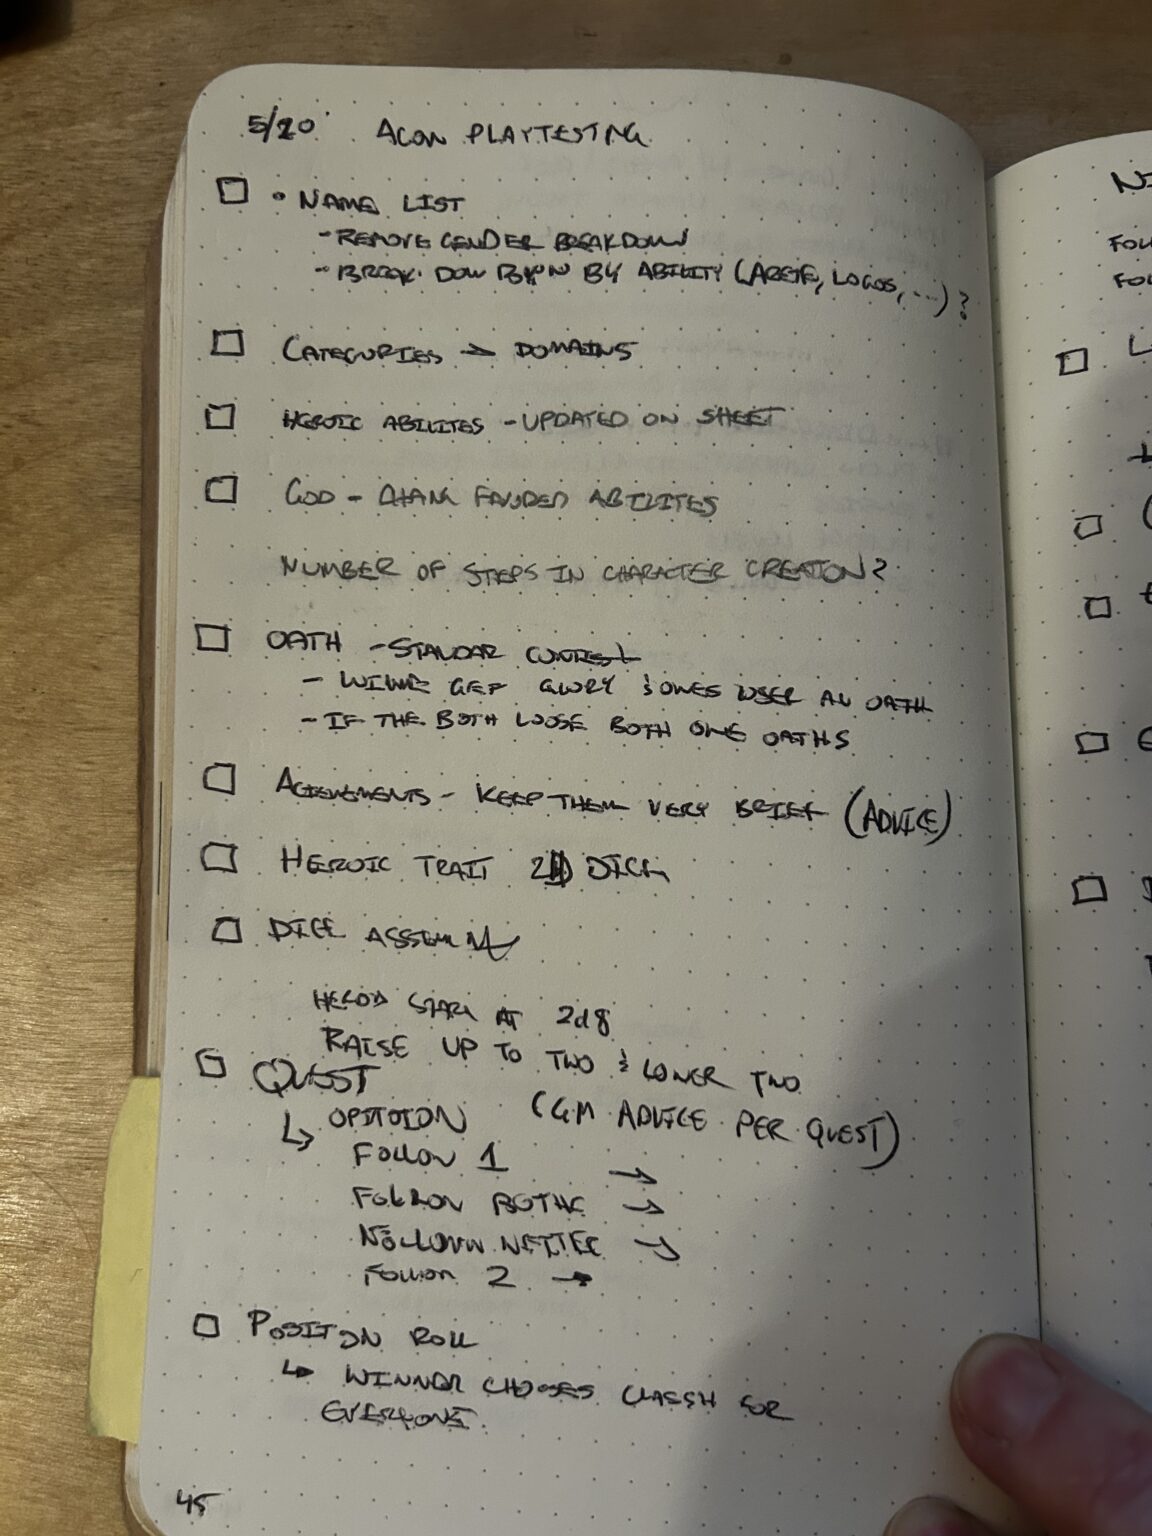 5/20 AGON PLAYTESTING
• NAME LIST
- REMOVE GENDER BREAKDOWN
- BREAK DOW BY ABILITY (ARETE, LOGOS, ...)?
CATEGORIES → DOMAINS
HEROIC ABILITES - UPDATED ON SHEET
GOD - FAVORED ABILITES
NUMBER OF STEPS IN CHARACTER CREATION?
OATH - STANDAR CONTEST
- GET GLORY & OWES USER AN OATH
- IF THE BOTH LOOSE BOTH OWE OATHS
ACIEVEMENTS - KEEP THEM VERY BRIEF (ADVICE)
HEROIC TRAIT DICE
DICE
START AT 2d8
RAISE UP TO TWO & LOWER TWO
QUEST
↳ (GM ADVICE PER QUEST)
FOLLOW 1 →
FOLLOW →
→
FOLLOW 2 →
POSITION ROLL
↳ WINNER CHOOSES CLASH FOR
EVERYONE
45
FOL